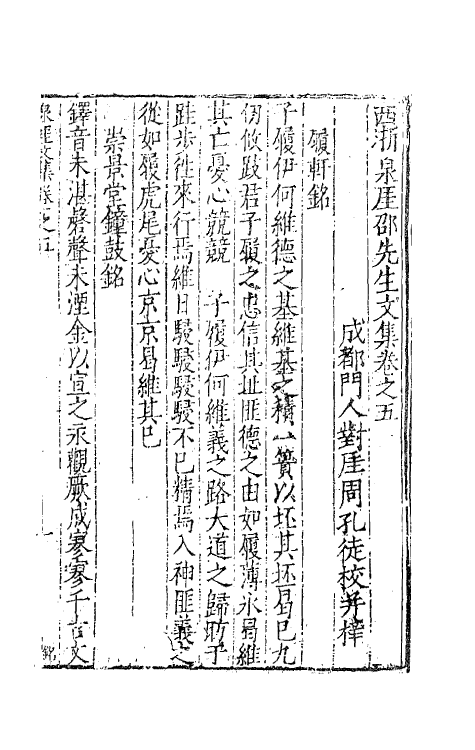 西浙泉厓邵先生文集卷之五
成都門人對厓周孔徒校并梓
履軒銘
子履伊何維德之基維基之積一簣以坯其坯曷已九
仞攸跂君子履之忠信其址匪德之由如履薄氷曷維
其亡憂心兢兢　子履伊何維義之路大道之歸昉予
跬步徃來行焉維日駸駸駸駸不已精焉入神匪義之
從如履虎尾憂心京京曷維其已
崇景堂鐘鼓銘
鐸音未湛磬聲未煙金以宣之永觀厥成寥寥千古文
泉厓文集卷之五
一